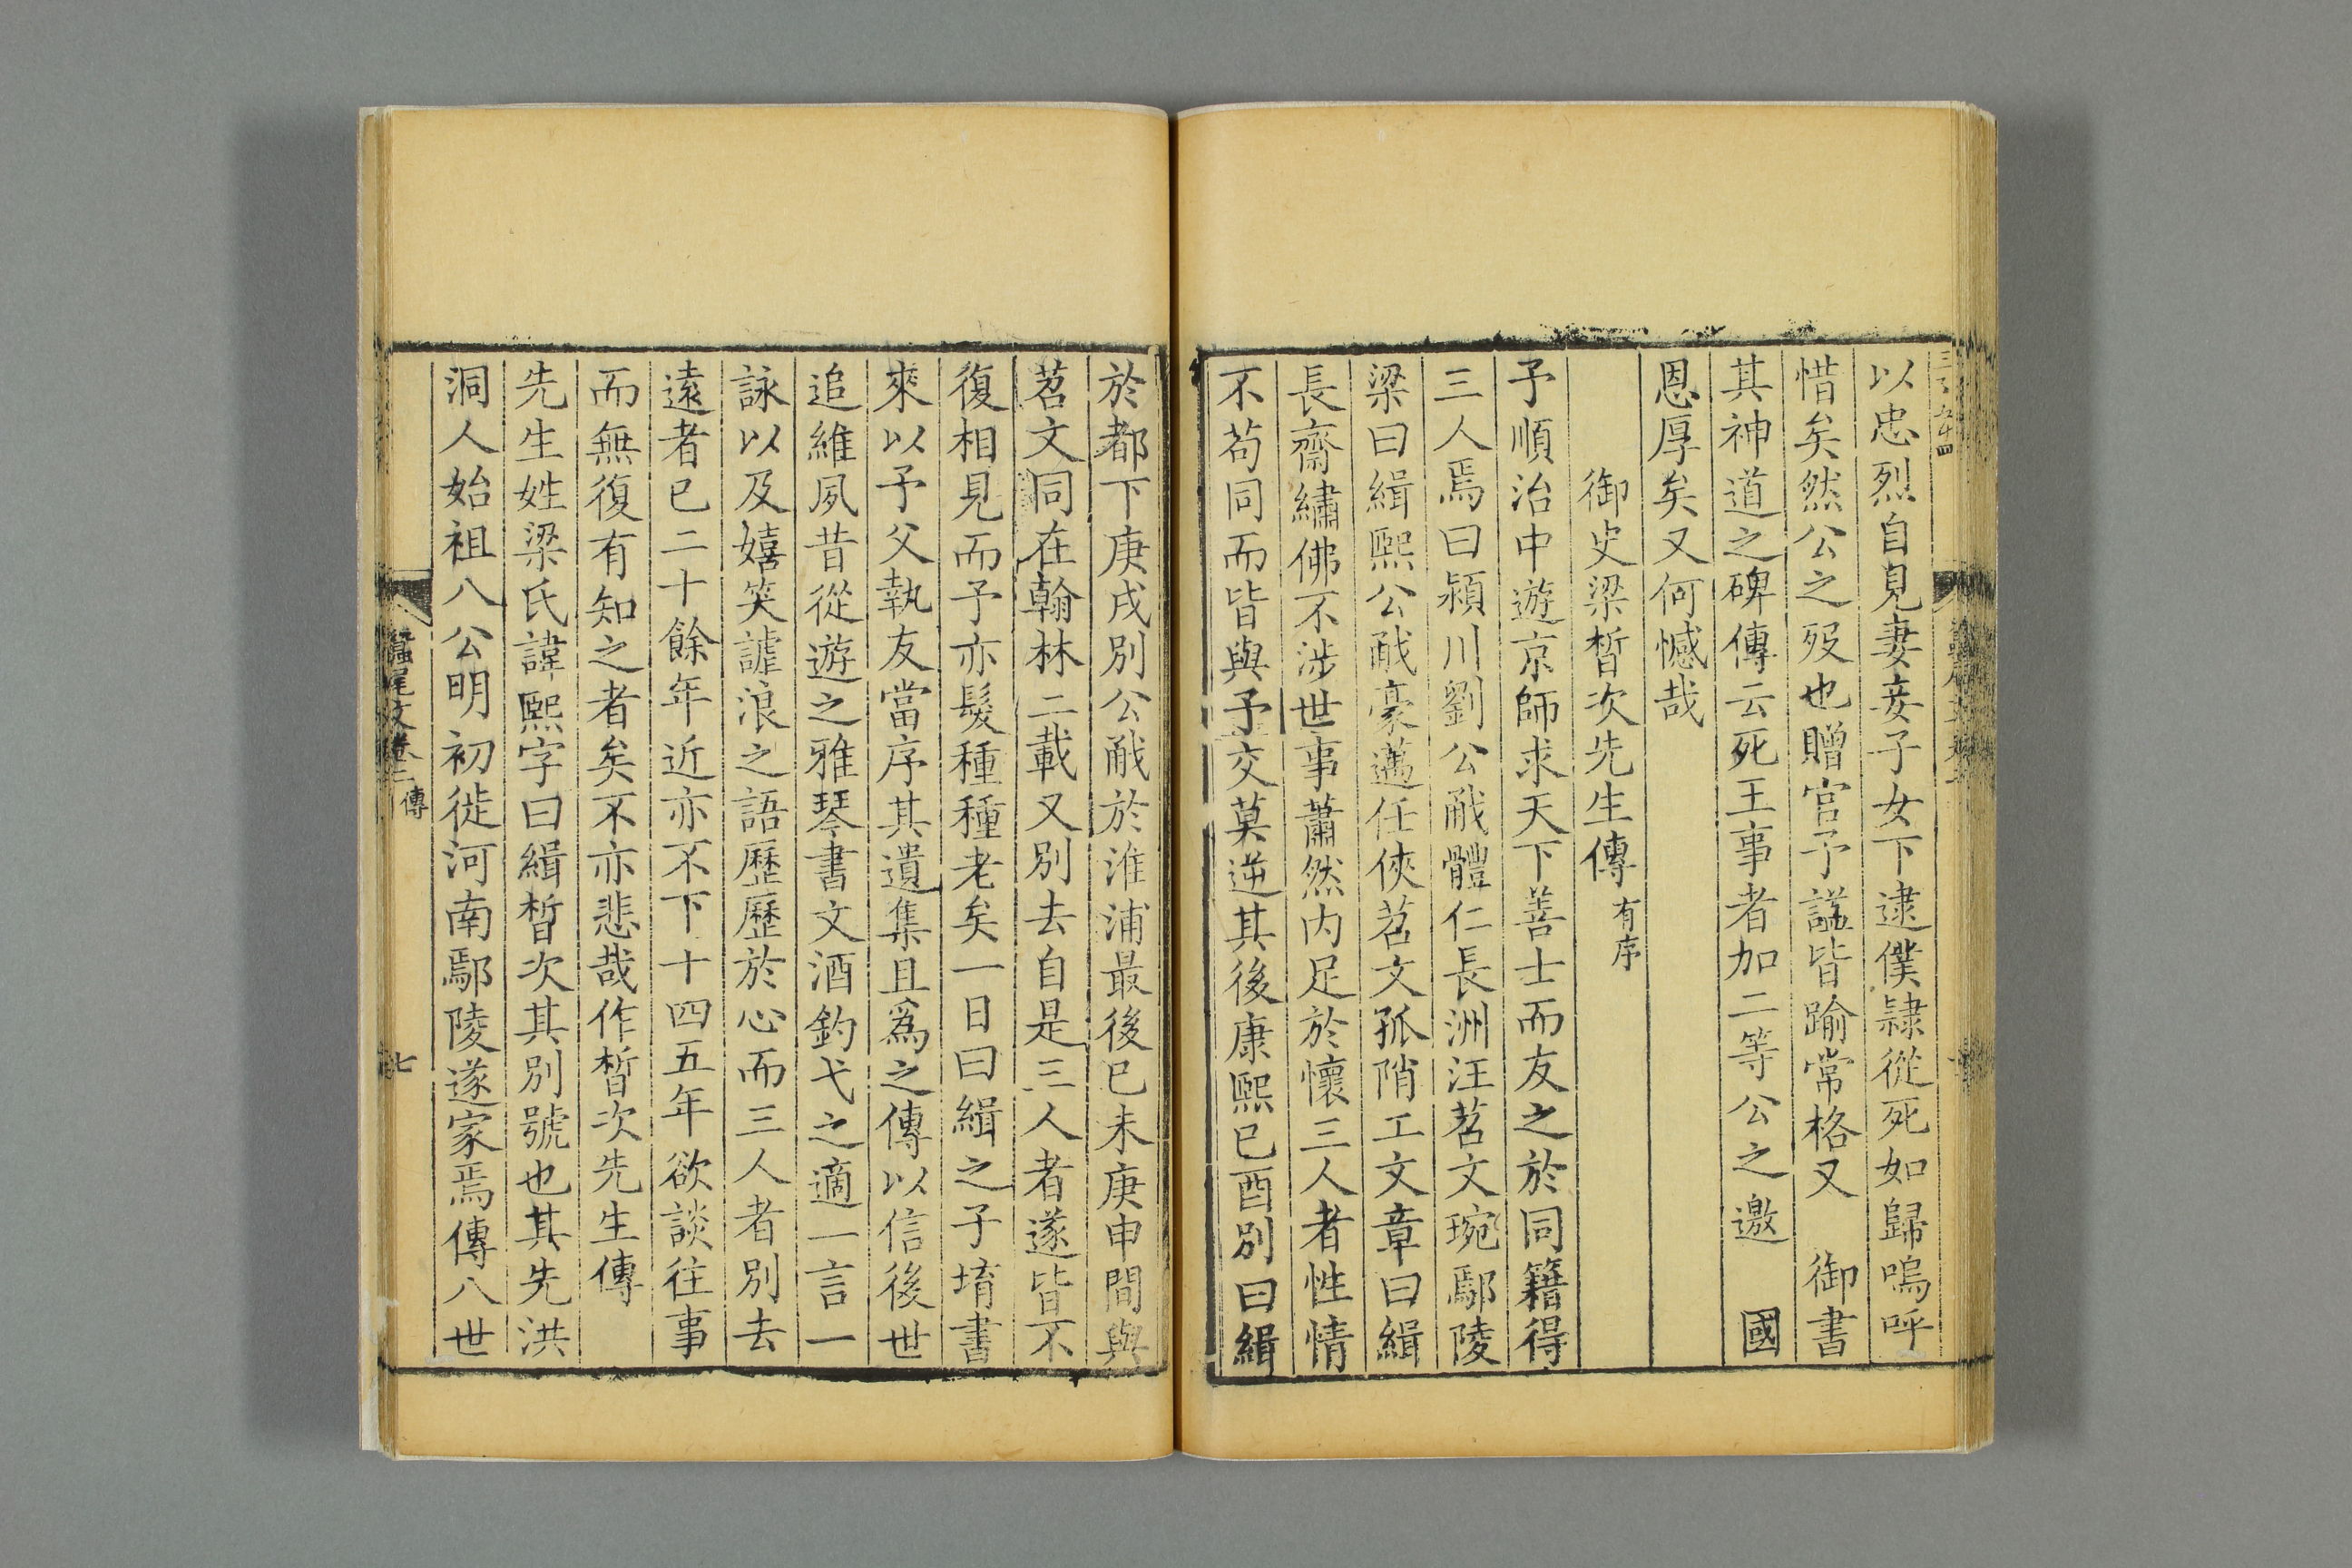 以忠烈自見妻妾子女下逮僕隷從死如歸嗚呼
惜矣然公之歿也贈官予諡皆踰常格又　御書
其神道之碑傳云死王事者加二等公之邀　國
恩厚矣又何憾哉
御史梁晳次先生傳有序
予順治中遊京師求天下善士而友之於同籍得
三人焉曰潁川劉公㦷體仁長洲汪苕文琬鄢陵
梁曰緝熙公㦷豪邁任俠苕文孤陗工文章曰緝
長齋繡佛不涉世事蕭然内足於懷三人者性情
不茍同而皆與予交莫逆其後康熙已酉別曰緝
於都下庚戌別公㦷於淮浦最後已未庚申間與
苕文同在翰林二載又別去自是三人者遂皆不
復相見而予亦髮種種老矣一日曰緝之子堉書
來以予父執友當序其遺集且爲之傳以信後世
追維夙昔從遊之雅琴書文酒釣弋之適一言一
詠以及嬉笑謔浪之語歷歷於心而三人者別去
遠者已二十餘年近亦不下十四五年欲談往事
而無復有知之者矣不亦悲哉作晳次先生傳
先生姓梁氏諱熙字曰緝晳次其別號也其先洪
洞人始祖八公明初徙河南鄢陵遂家焉傳八世
蠶尾文卷二 傳
七